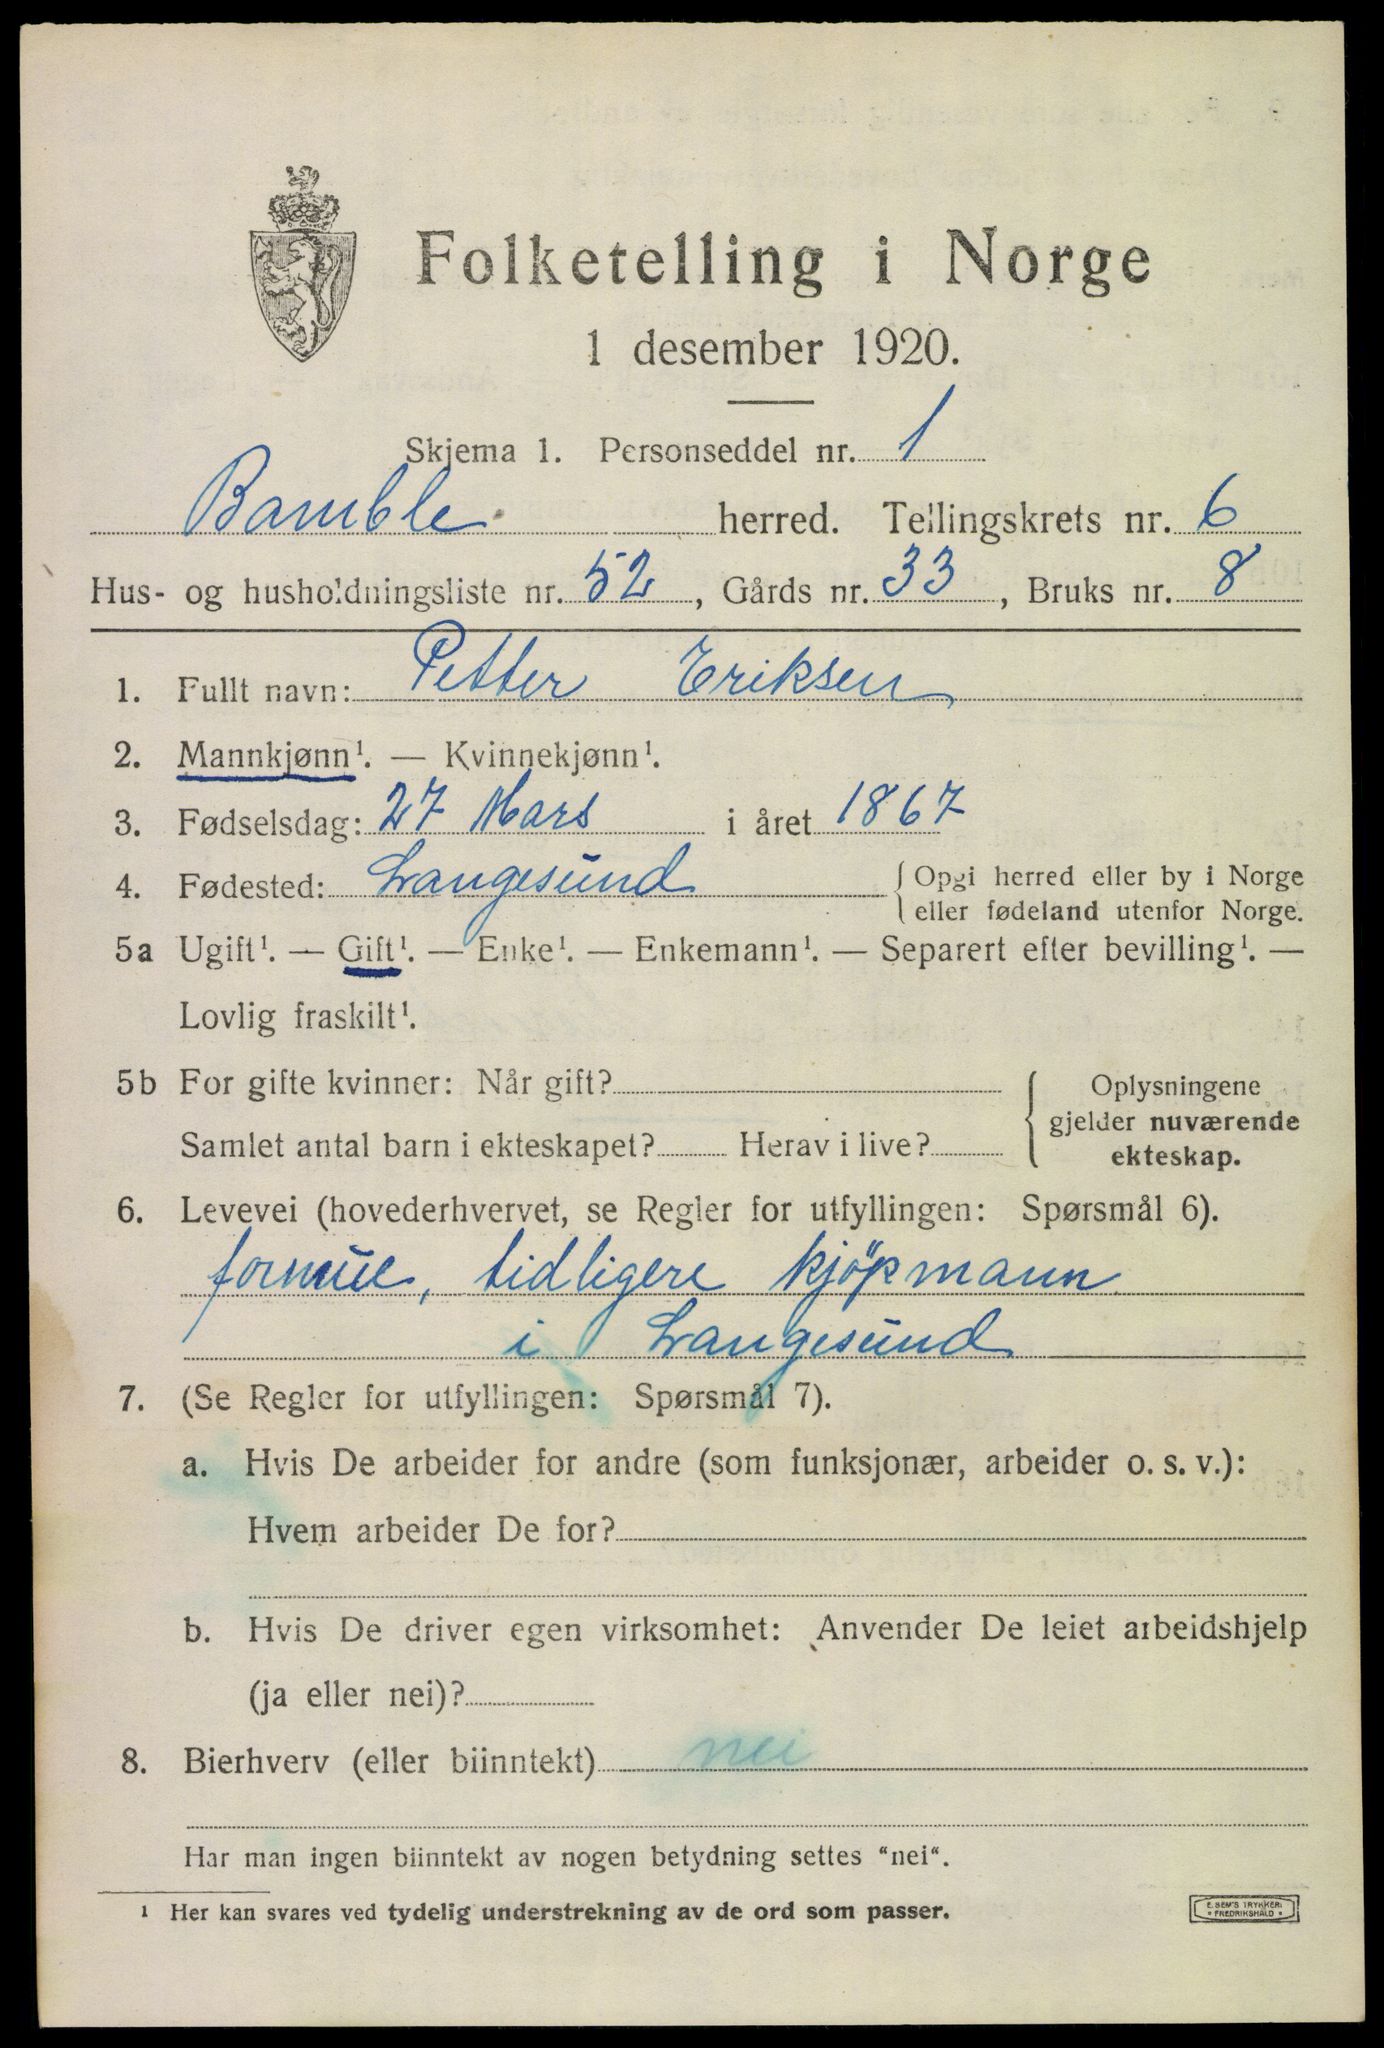 Folketelling i Norge
1 desember 1920.
Skjema 1. Personseddel nr. 1
Bamble herred. Tellingskrets nr. 6
Hus- og husholdningsliste nr. 52, Gårds nr. 33, Bruks nr. 8
1. Fullt navn: Petter Eriksen
2. Mannkjønn¹. — Kvinnekjønn¹.
3. Fødselsdag: 27 Mars i året 1867
4. Fødested: Langesund {Opgi herred eller by i Norge
eller fødeland utenfor Norge.
5a Ugift¹. — Gift¹. — Enke¹. — Enkemann¹. — Separert efter bevilling¹. —
Lovlig fraskilt¹.
5b For gifte kvinner: Når gift?
Samlet antal barn i ekteskapet? Herav i live?
{Oplysningene
gjelder nuværende
ekteskap.
6. Levevei (hovederhvervet, se Regler for utfyllingen: Spørsmål 6).
formue, tidligere kjöpmann
i Langesund
7. (Se Regler for utfyllingen: Spørsmål 7).
a. Hvis De arbeider for andre (som funksjonær, arbeider o. s. v.):
Hvem arbeider De for?
b. Hvis De driver egen virksomhet: Anvender De leiet arbeidshjelp
(ja eller nei)?
8. Bierhverv (eller biinntekt) nei
Har man ingen biinntekt av nogen betydning settes "nei".
1 Her kan svares ved tydelig understrekning av de ord som passer.
E. SEM'S TRYKKERI
* FREDRIKSHALD *